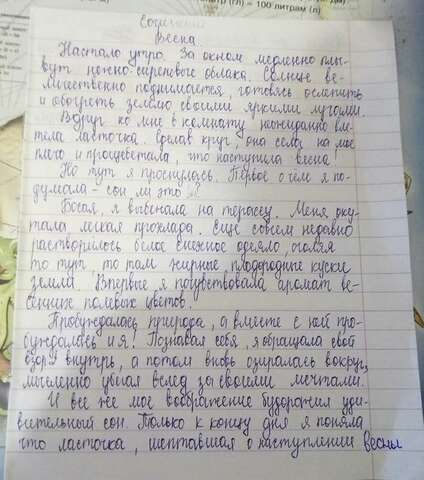 100 литрам (л)
Сочинение
Весна.
Настало утро. За окном медленно плы-
вут нежно-сиреневые облака. Солнце ве-
личественно поднимается, готовясь ослепить
и обогреть землю своими яркими лучами.
Вдруг ко мне в комнату неожиданно вле-
тела ласточка. Сделав круг, она села на моё
плечо и прощебетала, что наступила весна!
Но тут я проснулась. Первое о чём я по-
думала - сон ли это?
Босая, я выбежала на терассу. Меня оку-
тала легкая прохлада. Ещё совсем недавно
растворилось белое снежное одеяло, оголяя
то тут, то там жирные, плодородные куски
земли. Впервые я почувствовала аромат ве-
сенних полевых цветов.
Пробуждалась природа, а вместе с ней про-
буждалась и я! Познавая себя, я обращала свой
взор внутрь, а потом вновь озиралась вокруг,
мысленно убегая вслед за своими мечтами.
И все же мое воображение будоражил уди-
вительный сон. Только к концу дня я поняла
что ласточка, шептавшая о наступлении весны